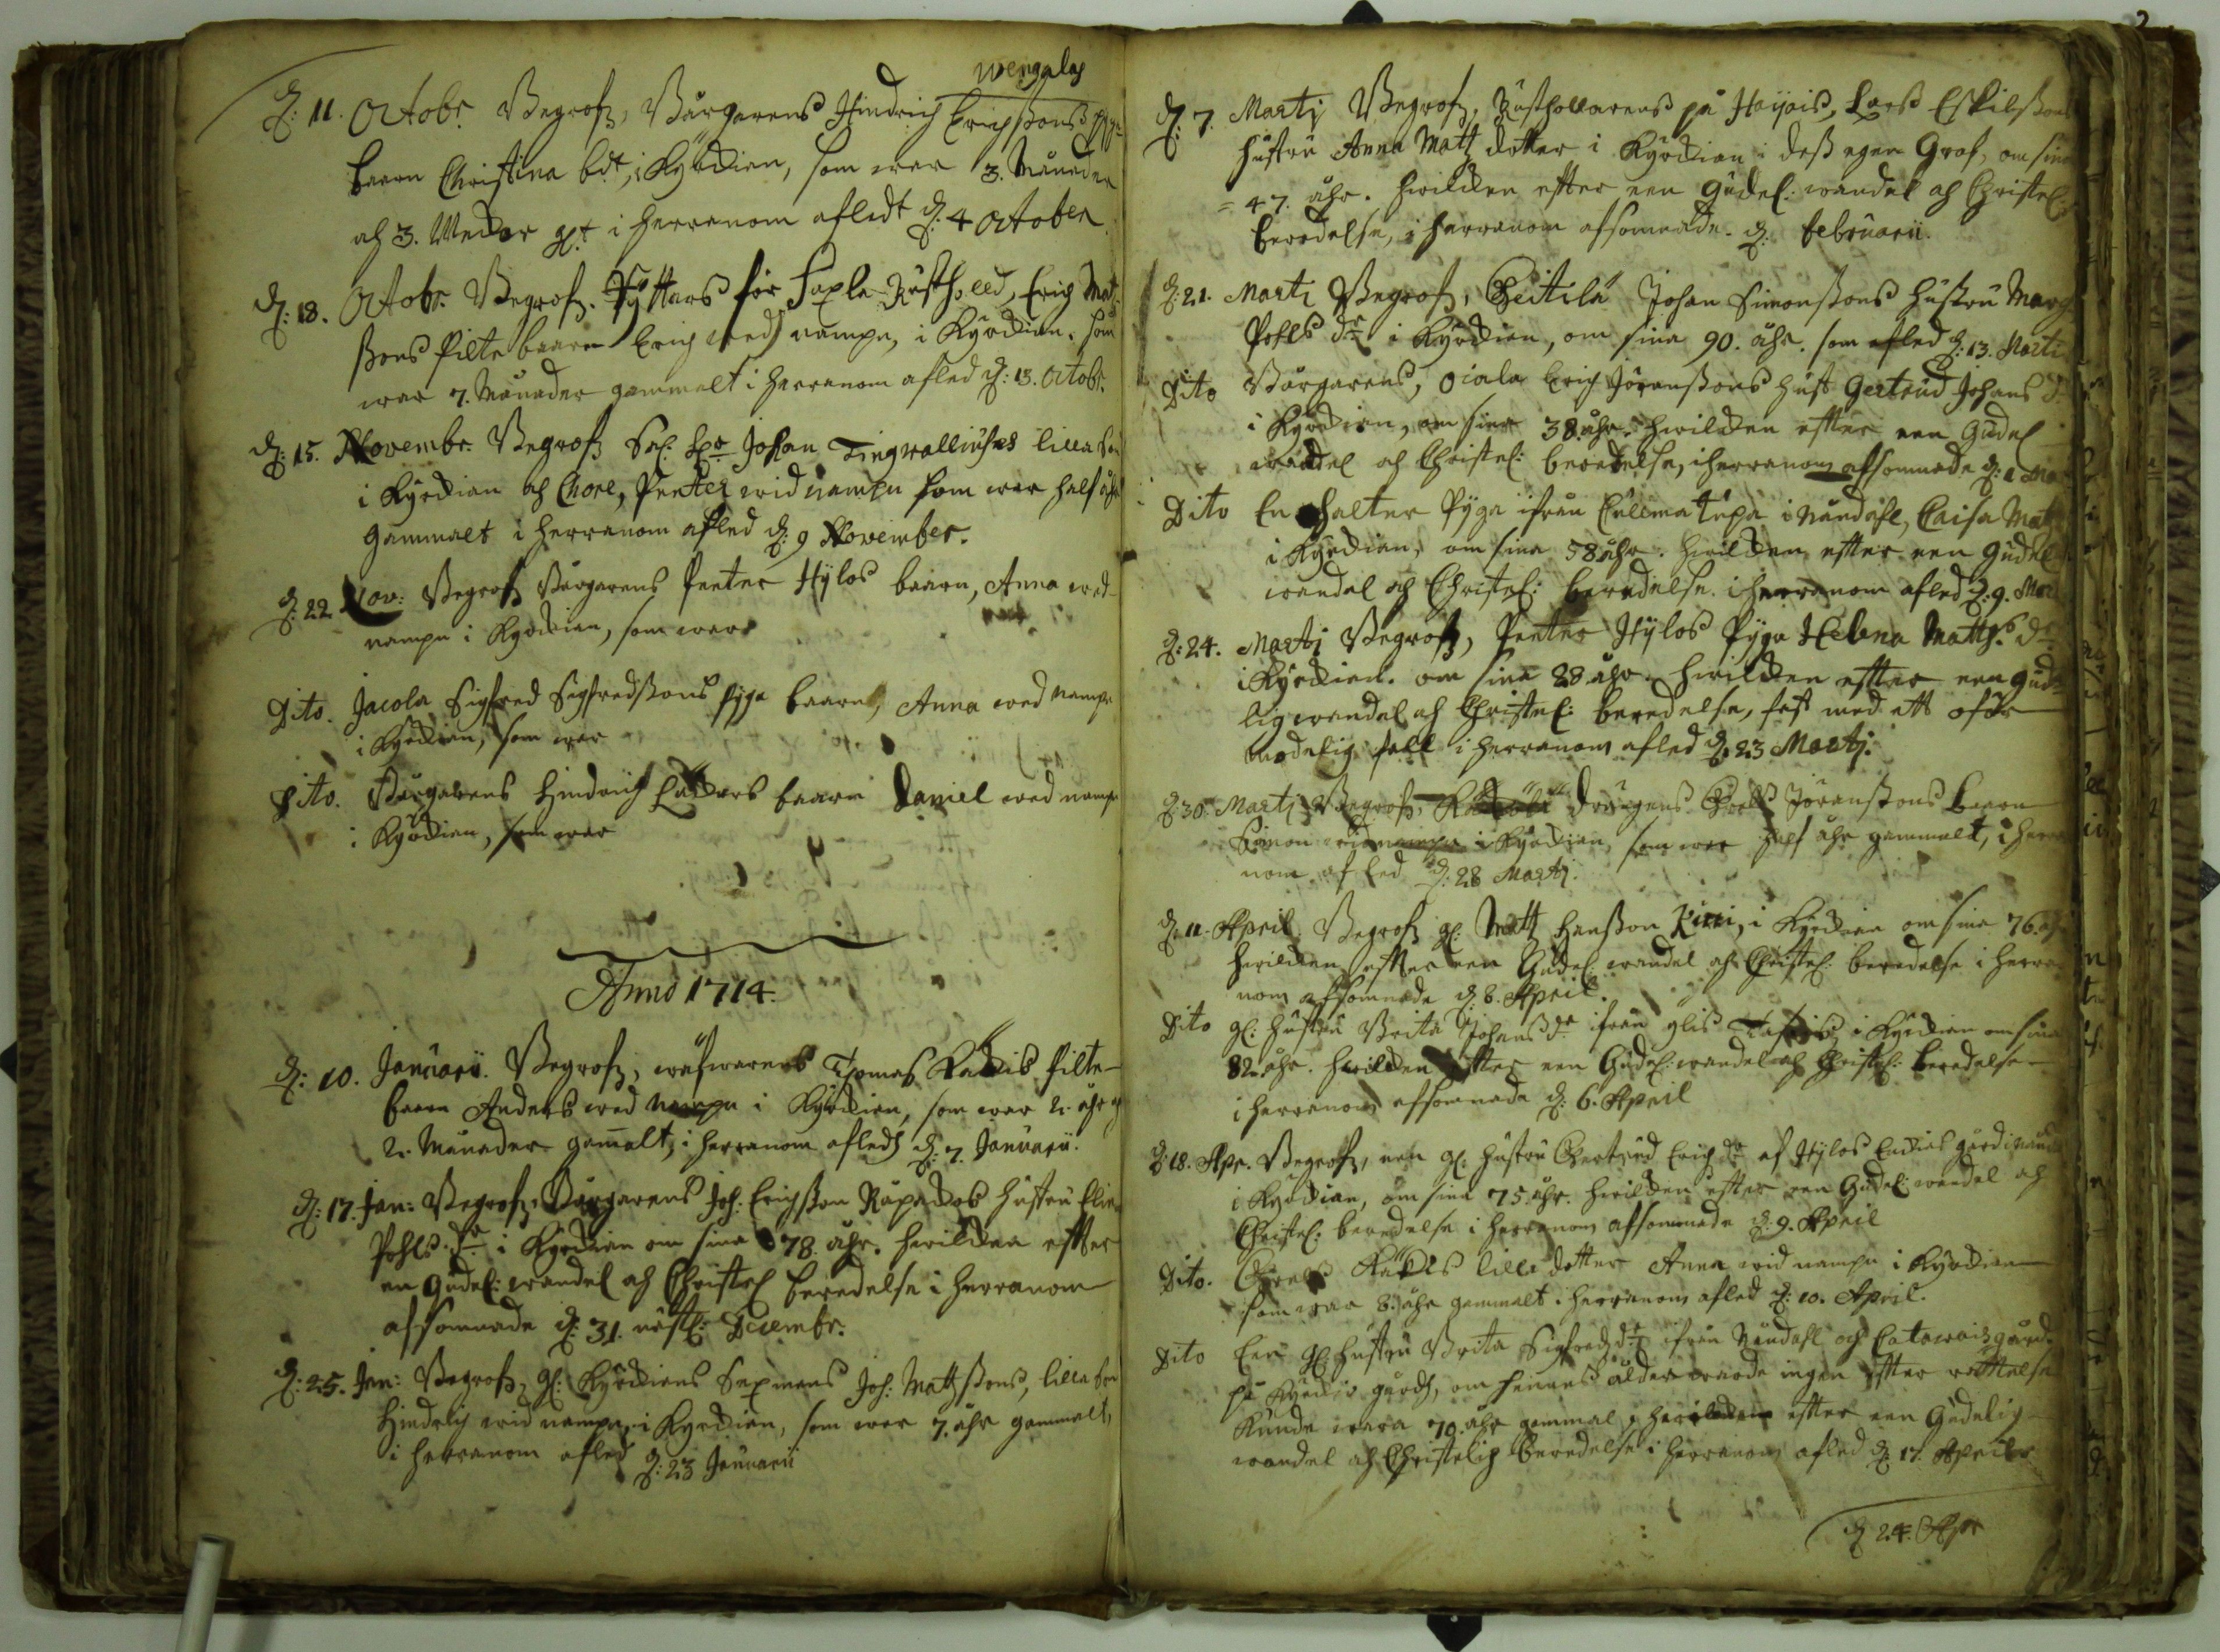 wengalas
d: 11. Octobr. Begrofz, Bårgarens Hindrich Erichssons pyge
baarn Christina bdt, i Kyrckian, som war 3. Månader
och 3. Weckor glt i herranom afledt d: 4 October
d: 18. Octobr. Begrofz. Ryttars för Saxla Rusthold, Erich Mat
ssons Pilte baarn Erich wed nampn, i Kyrckian. som
war 7. Månader gammalt i herranom afled d: 13. Octobr.
d: 15. Novembr. Begrofz Sal. hr Johan Tingwalliuses lilla son
i Kyrckian och Chore, Peeter wid nampn som war half åhr
gammalt i herranom afled d: 9 November.
d: 22 Nov: Begrofz Bårgarens Peeter Hÿlos baarn, Anna wed
nampn i Kyrckian, som war
Dito. Jacola Sigfred Sigfredssons pyge baarn, Anna wed nampn
i Kyrckian, som war
Dito. Bårgarens Hindrich baarn Daniel wed nampn
i Kyrckian, som war
Anno 1714.
d: 10. Januarii. Begrofz, wäfwarens Thomas pilte
baarn Anders wed nampn i Kyrckian, som war 2. åhr och
2. Månader gamalt, i herranom afledh d: 7. Januarii.
d: 17. Jan: Begrofz, Bårgarens Joh: Erichsson hustru
Pohls dr i Kyrckian om sina 78. åhr. hwilcken effter
en Gudel: wandel och Christel beredelse i herranom
afsomnade d: 31. nästl: Decembr.
d: 25. Jan: Begrofz, gl: Kyrckiens Sexmans Joh: Mattssons, lilla son
Hindrich wid nampn, i Kyrckian, som war 7. åhr gammalt,
i herranom afled d: 23 Januarii
d: 7. Martj Begrofz, Rusthollarens på Haijais, Lars Eskilsson
hustru Anna Matts dotter i Kyrckian i dess egen Graf, om sina
47. åhr. hwilcken effter een Gudel: wandel och Christel:
beredelse, i herranom afsomnade. d: februarii.
d: 21. Marti Begrofz, Heitilä Johan Simonssons hustru Marg
Pohls dr i Kyrckian, om sina 90. åhr. som afled d: 13. Marti
Dito Bårgarens, Oiala Erich Jöranssons hust Gertrud Johans d
i Kyrckian, om sina 38 åhr. hwilcken effter een Gudel
wandel och Christel: beredelse, i herranom afsomnade d:
Dito En halter Pyga ifrån tupa i Nåndahl, Caisa Mat
i Kyrckian, om sina 58 åhr. hwilcken effter een Gudel
wandel och Christel: beredelse. i herranom afled d: 9. Mar
d: 24. Martj Begrofz, Peeter Hÿlos Pyga Helena Matths. dr
i Kyrckian. om sina 28 åhr. hwilcken effter een gude
lig wandel och Christel: beredelse, fast med ett
fall i herranom afled d: 23 Martj.
d: 30. Martj Begrofz, drängens Jöranssons baarn
Simon wid nampn i Kyrckian, som war half åhr gammalt, i herra
nom afled d: 28 Martj.
d. 11. April. Begrofz gl: Matts Hansson i Kyrckian om sina 76. åh
hwilcken effter een Gudel: wandel och Christel: beredelse i herra
nom afsomnade d. 8. April.
Dito gl: hustru Brita Johans dr ifrån i Kyrckian om sina
82. åhr. hwilcken effter een Gudel: wandel och Christel: beredelse
i herranom afsomnade d: 6. April
d: 18. Apr. Begrofz, een gl: hustru Gertrud Erich dr af Hÿlos gård i Nånd
i Kyrckian, om sina 75. åhr. hwilcken effter een Gudel: wandel och
Christel: beredelse i herranom afsomnade d: 9. April
Dito. lilla dotter Anna wid nampn i Kyrckian
som war 8. åhr gammalt i herranom afled d: 10. April.
Dito Een gl: hustru Brita Sigfreds dr ifrån Nåndahl och gård
på Kyrckio gårdh, om hennes ålder wiste ingen effter rättelse
kunde wara 70. åhr gammal, hwilcken effter een Gudelig
wandel och Christelig beredelse i herranom afled d: 17. Aprils
d 24. Apr